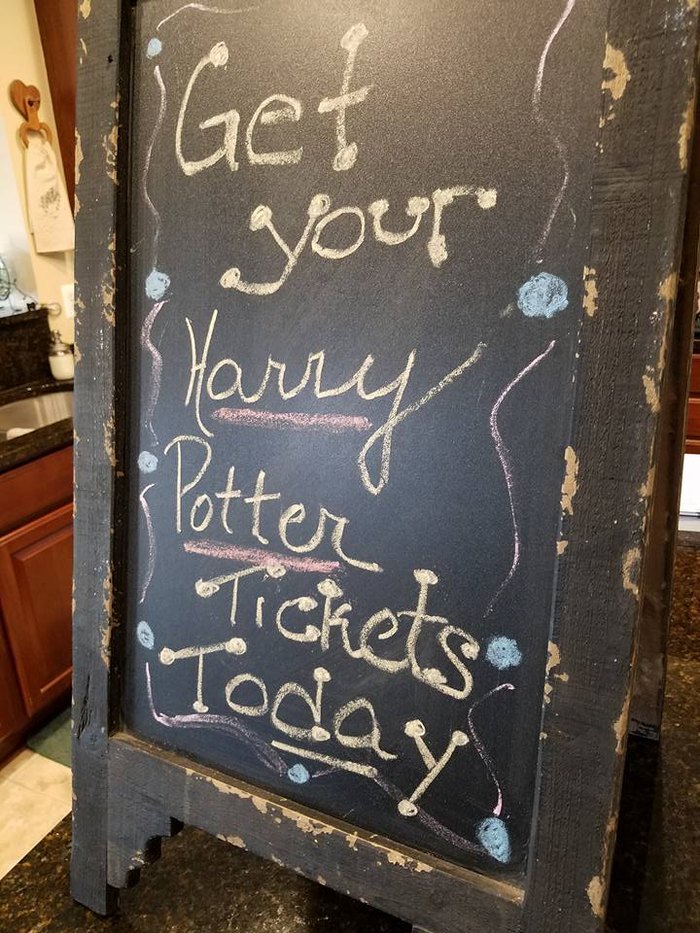 Get
your
Harry
Potter
Tickets
Today